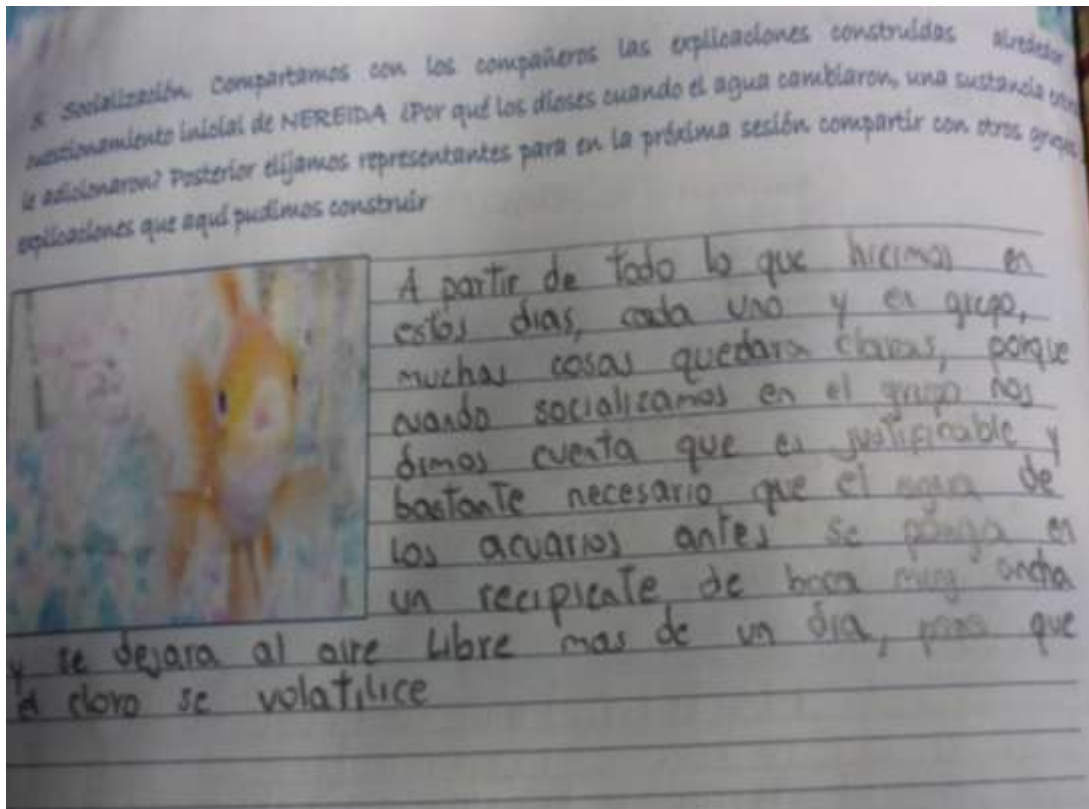 Socialización. Compartamos con los compañeros las explicaciones construídas alrededor
cuestionamiento inicial de NEREIDA ¿Por qué los dioses cuando el agua cambiaron, una sustancia
le adicionaron? Posterior elijamos representantes para en la próxima sesión compartir con otros grupos
explicaciones que aquí pudimos construir
A partir de todo lo que hicimos en
estos dias, cada uno y en grupo,
muchas cosas quedara claras, porque
cuando socializamos en el grupo nos
dimos cuenta que es justificable y
bastante necesario que el agua de
los acuarios antes se ponga en
un recipiente de boca muy ancha
y se dejara al aire libre mas de un dia, que
el cloro se volatilice